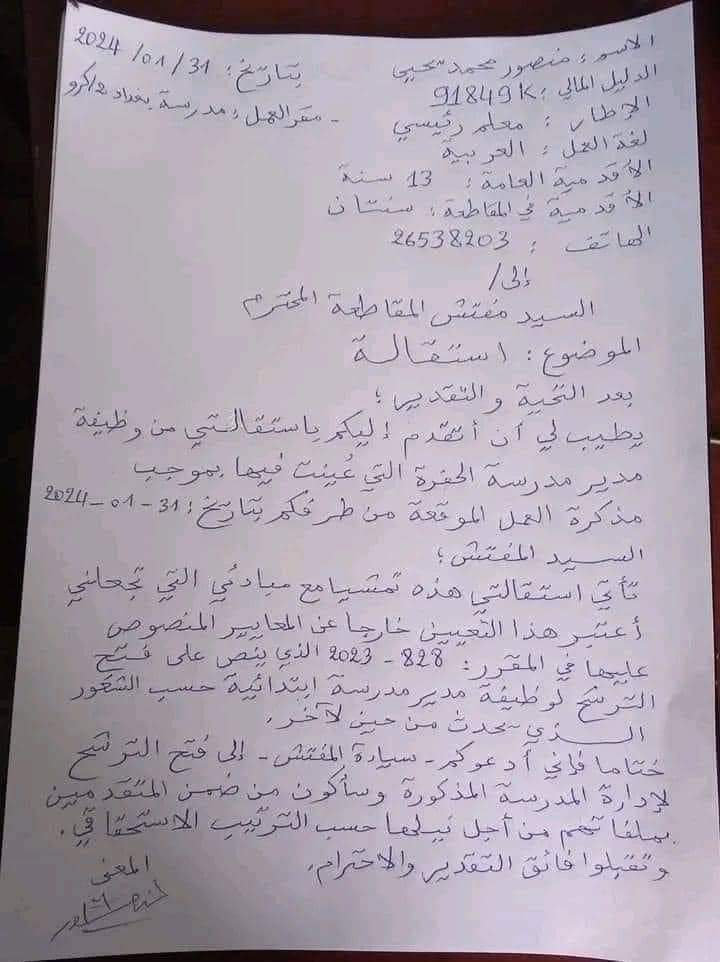 الاسم : منصور محمد يحيى
بتاريخ : 31 / 01 / 2024
الدليل المالي : 91849K
- مقر العمل : مدرسة بغداد 2/كرو
الإطار : معلم رئيسي
لغة العمل : العربية
الأقدمية العامة : 13 سنة
الأقدمية في المقاطعة : سنتان
الهاتف : 26538203
إلى/
السيد مفتش المقاطعة المحترم
الموضوع : استقالة
بعد التحية والتقدير ؛
يطيب لي أن أتقدم إليكم باستقالتي من وظيفة
مدير مدرسة الحفرة التي عُينت فيها بموجب
مذكرة العمل الموقعة من طرفكم بتاريخ : 31-01-2024
السيد المفتش ؛
تأتي استقالتي هذه تمشيا مع مبادئي التي تجعلني
أعتبر هذا التعيين خارجا عن المعايير المنصوص
عليها في المقرر : 828 - 2023 الذي ينص على فتح
الترشح لوظيفة مدير مدرسة ابتدائية حسب الشغور
الذي يحدث من حين لآخر.
ختاما فإني أدعوكم - سيادة المفتش - إلى فتح الترشح
لإدارة المدرسة المذكورة وسأكون من ضمن المتقدمين
بملفاتهم من أجل نيلها حسب الترتيب الاستحقاقي.
وتقبلوا فائق التقدير والاحترام.
المعني